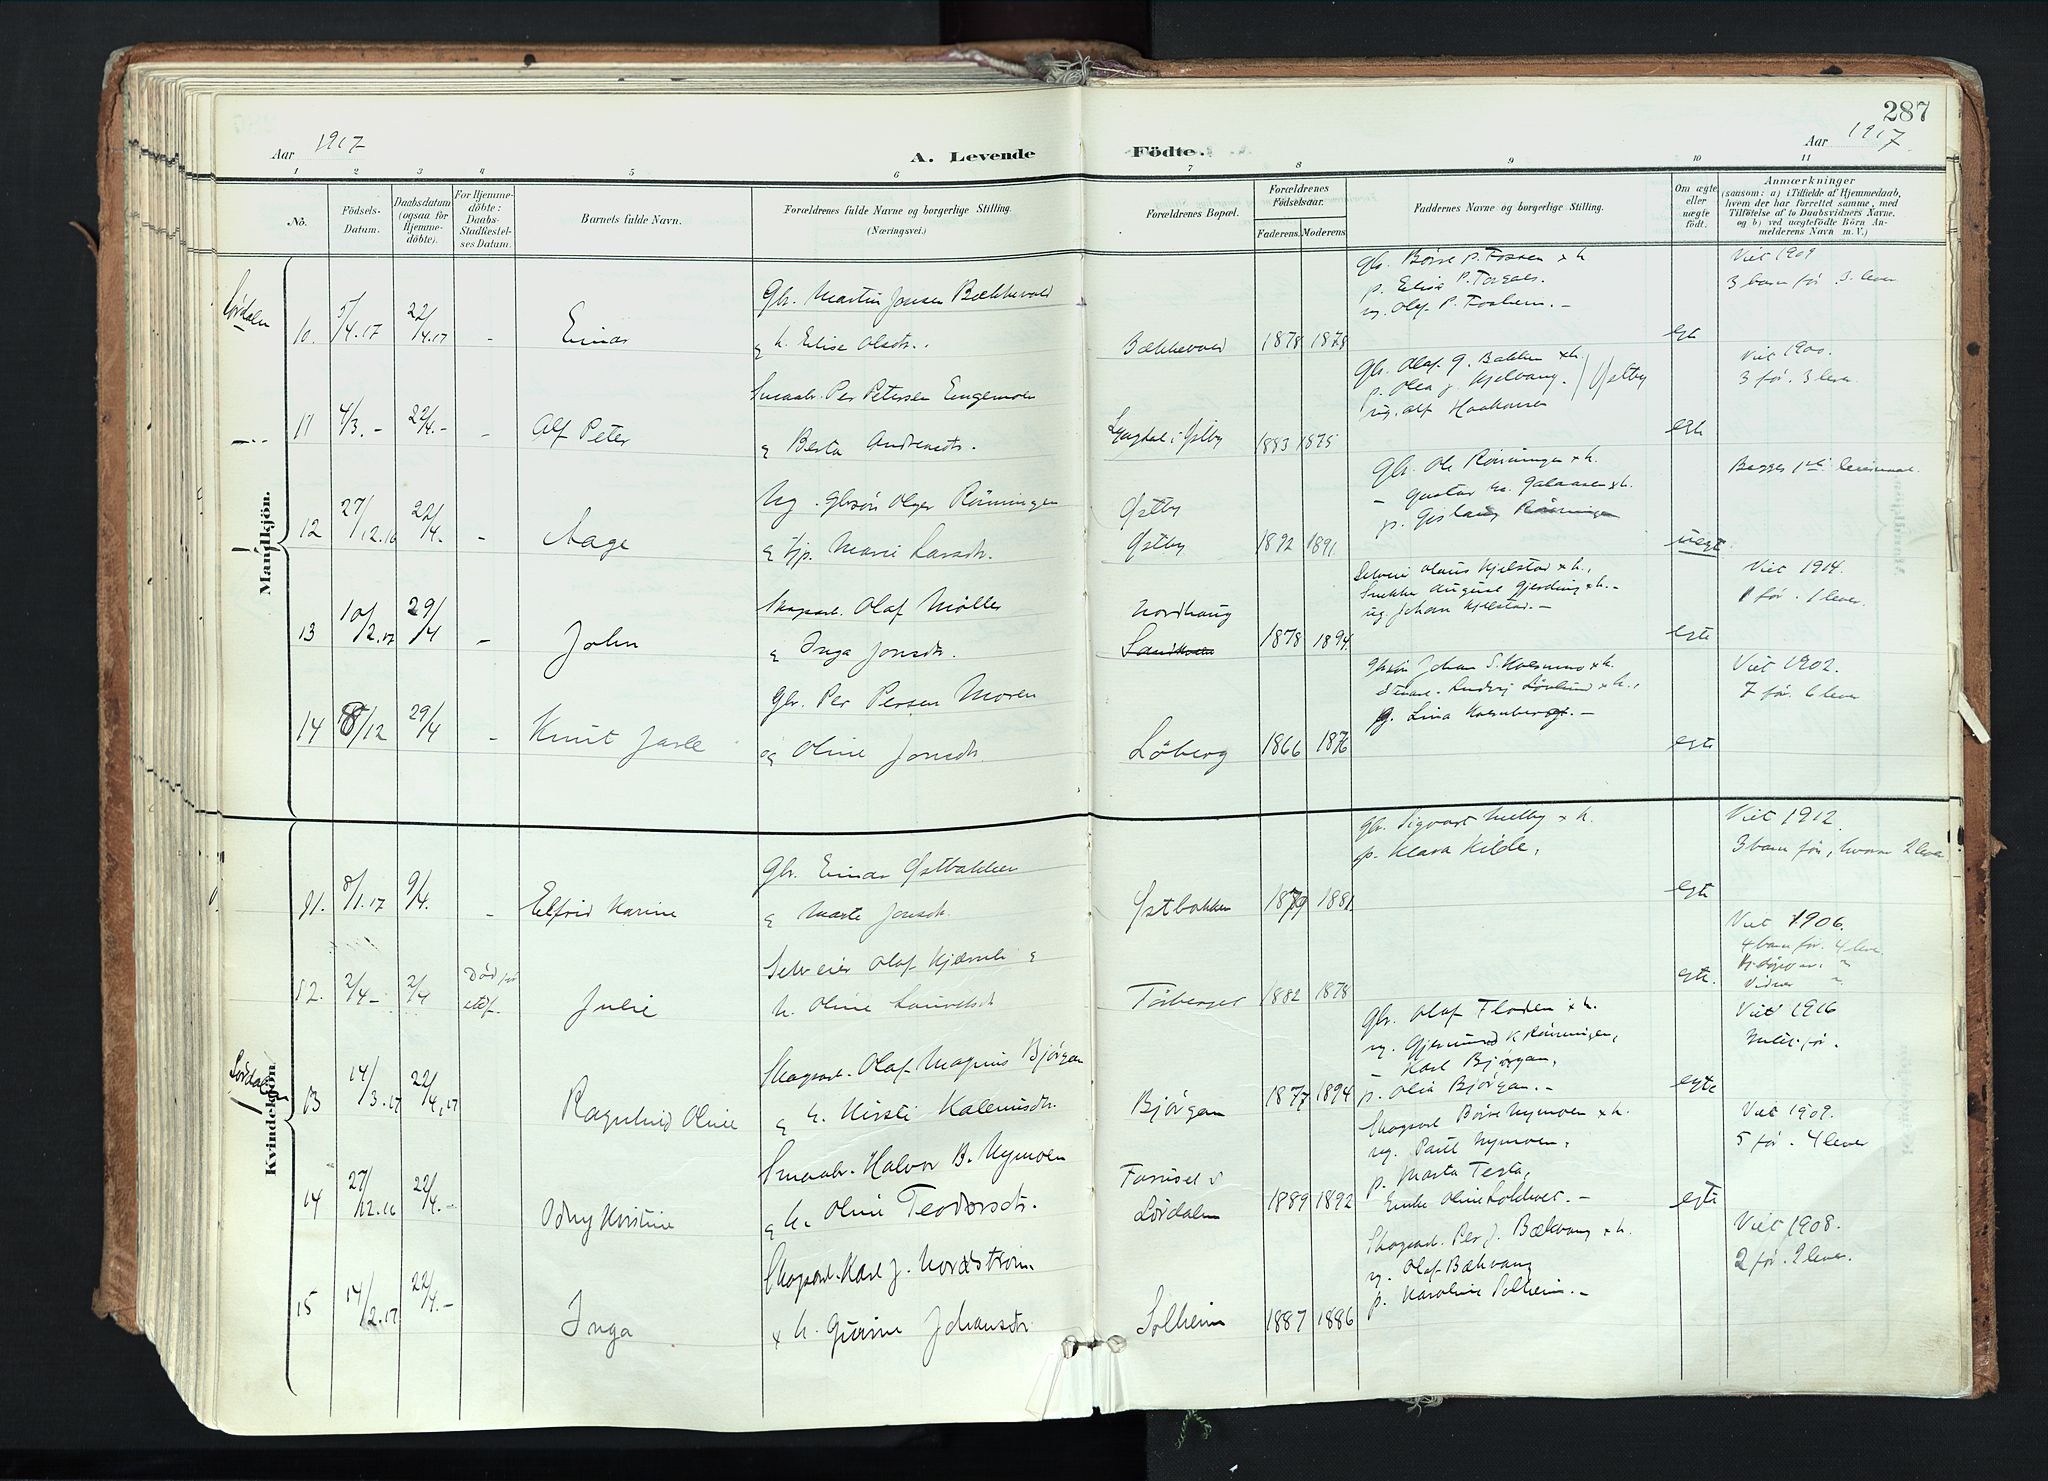 287
Aar 1917
A. Levende Födte.
Aar 1917.
1 2 3 4 5 6 7 8 9 10 11
No.
Födsels-Datum.
Daabsdatum (ogsaa for Hjemme-döbte).
For Hjemme-döbte: Daabs-Stadfæstel-ses Datum.
Barnets fulde Navn.
Forældrenes fulde Navne og borgerlige Stilling.
(Næringsvei.)
Forældrenes Bopæl.
Forældrenes Födselsaar.
Faderens. Moderens.
Faddernes Navne og borgerlige Stilling.
Om ægte eller uægte födt.
Anmærkninger
(saasom: a) i Tilfælde af Hjemmedaab,
hvem der har forrettet samme, med
Tilföielse af to Daabsvidners Navne.
og b) ved uægtefödte Börn An-
melderens Navn m. V.)
Mandkjön.
Sørdalen
10. 5/4.17 22/4.17 - Einar
Gbr. Martin Jonsen Bækkevold
& h. Elise Olsdtr.
Bækkevold 1878 1878
Gbr. Børre P. Fossen & h.
p. Elise P.
ug. Olaf P. Fosheim. -
egte
Viet 1909
3 barn før 3 lever
11 4/3. - 22/4. - - Alf Peter
Smaabr. Per Petersen Engemoen
& Berta Andreasdtr.
i Østby 1883 1875
Gbr. Olaf G. Bakken & h.
p. Olea J. Kjelvang. / Østby
ug. Alf Haakonsen
egte
Viet 1900.
3 før. 3 lever
12 27/12.16 22/4. - - Aage
Ug. Gbrsøn Olger Rønningen
& tjp. Marie Larsdtr.
Østby
Østby 1892 1891
Gbr. Ole Rønningen & h.
- Gustav M. Galaasen & h.
p. Rønningen
uegte
Begges 1ste leiermaal.
13 10/2.17 29/4 - John
Skogsarb. Olaf Møller
& Inga Jonsdtr.
Nordhaug
1878 1894
Selveier Olaus Kjelstad & h.,
Snekker August Gjerding & h. -
ug. Johan Kjelstad. -
egte
Viet 1914.
1 før. 1 lever.
14 8/12 29/4 - Knut Jarle
Gbr. Per Persen Moren
og Oline Jonsdtr.
Løberg 1866 1876
Johan S. & h.
Ludvig Løvlund & h.,
p. Lina -
egte
Viet 1902.
7 før 6 lever
Kvindekjön.
11. 8/1.17 9/4. - Elfrid Karine
Gbr. Einar Østbakken
& Marte Jonsdtr.
Østbakken 1879 1881
Gbr. Sigvart Melby & h.
p. Klara Kilde,
egte
Viet 1912
3 barn før, hvorav 2 lever
12. 2/4 - 2/4 Død før stdf. Julie
Selveier Olaf Kjærnli &
h. Oline Lauritsdtr
Tørberget 1882 1878
egte.
Viet 1906.
4 barn før. 4 lever
Sørdalen
13 14/3.17 22/4.17 Ragnhild Oline
Skogsarb. Olaf Magnus Bjørgan
& h. Kirsti Kaleniusdtr.
Bjørgan 1877 1894
Gbr. Olaf Floden & h.
ug. Gjermund K. Rønningen,
- Karl Bjørgan,
p. Olia Bjørgan. -
egte
Viet 1916
Intet før.
14 27/12.16 22/4. - Odny Kristine
Smaabr. Halvor B. Nymoen
& h. Oline Teodorsdtr.
Sørdalen 1889 1892
Skogsarb Børre Nymoen & h.
ug. Paul Nymoen,
p. Marta
Enke Oline -
egte
Viet 1909.
5 før. 4 lever
15 14/2.17 22/4. - Inga
Skogsarb. Karl J. Nordstrøm
& h. Gurine Johansdtr.
Solheim 1887 1886
Skogsarb. Per J. Bækvang & h.
ug. Olaf Bækvang
p. Karoline Solheim. -
Viet 1908.
2 før. 2 lever.